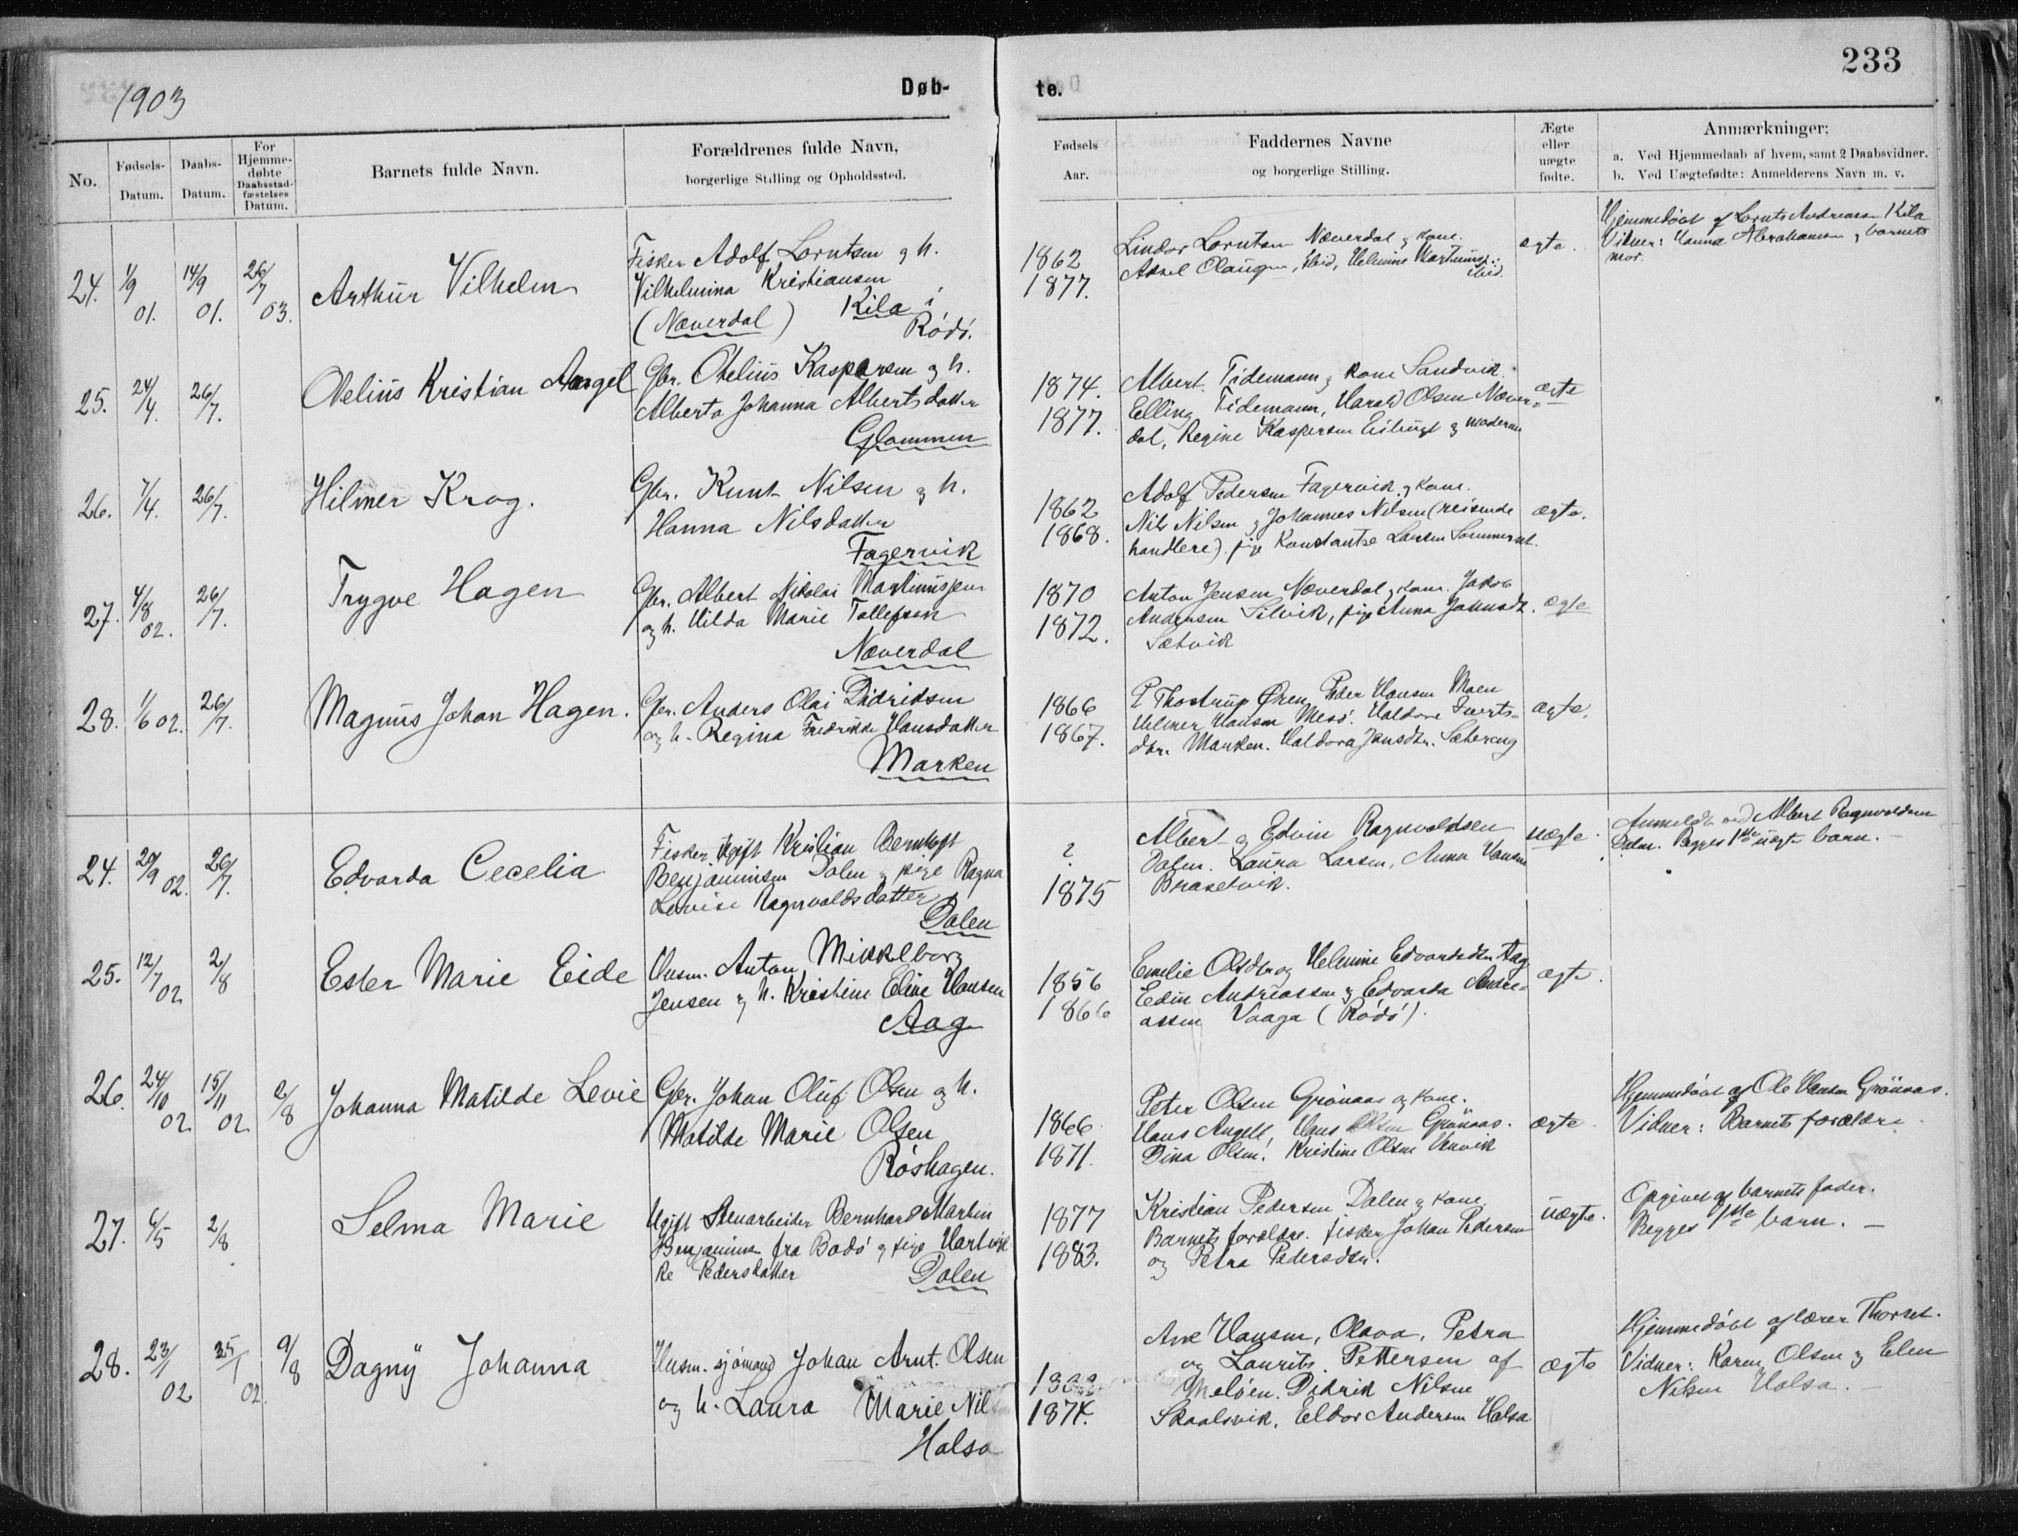 1903
Døb-
te.
233
No.
Fødsels-
Datum.
Daabs-
Datum.
For
Hjemme-
døbte
Daabsstad-
fæstelses
Datum.
Barnets fulde Navn.
Forældrenes fulde Navn,
borgerlige Stilling og Opholdssted.
Fødsels
Aar.
Faddernes Navne
og borgerlige Stilling.
Ægte
eller
uægte
fødte.
Anmærkninger;
a. Ved Hjemmedaab af hvem, samt 2 Daabsvidner.
b. Ved Uægtefødte: Anmelderens Navn m. v.
24. 1/9 01. 14/9 01. 26/7 03.
Arthur Vilhelm
Fisker Adolf Lorntsen og h.
Vilhelmina Kristiansen
(Næverdal) Kila i
Rödö.
1862
1877.
Lindor Lorntsen Næverdal og kone.
Aksel ibid, Helmine
ibid
ægte.
Hjemmedöbt af Lornts Andreassen Kila
Vidner: Hanna Abrahamsen og barnets
mor.
25. 24/4. 26/7.
Otelius Kristian Aangel
Gbr. Otelius Kaspersen og h.
Alberta Johanna Albertsdatter
Glommen
1874.
1877.
Albert Tidemann og kone Sandvik.
Elling Tidemann, Harald Olsen Næver-
dal, Regine Kaspersen og moderen
ægte
26. 7/4. 26/7.
Hilmer Krog.
Gbr. Knut Nilsen og h.
Hanna Nilsdatter
Fagervik
1862
1868.
Adolf Pedersen Fagervik og kone.
Nils Nilsen og Johannes Nilsen (reisende
handlere). pige Konstantse Larsen
ægte.
27. 4/8 02. 26/7.
Trygve Hagen
Gbr. Albert Nikolai Martinussen
og h. Hilda Marie Tollefsen
Næverdal
1870
1872.
Anton Jensen Næverdal og kone. Jakob
Andersen Selvik, pige Anna
Sætvik
ægte
28. 1/6 02. 26/7.
Magnus Johan Hagen.
Gbr. Anders Olai Didriksen
og h. Regina Fredrikke Hansdatter
Marken
1866
1867.
P Thostrup Ören, Peder Hansen Moen
Helmer Hansen Mesö. Haldora Iverts-
dtr. Marken. Haldora Jensdtr. Sætereng
ægte.
24. 20/9 02. 26/7.
Edvarda Cecelia
Fisker, Ugift Kristian Bernhoft
Benjaminsen Dalen og pige Ragna
Lovise Ragnvaldsdatter
Dalen
?
1875
Albert og Edvin Ragnvaldsen
Dalen. Laura Larsen, Anna Hansen
Brasetvik.
uægte.
Anmeldt ved Albert Ragnvaldsen
Dalen. Begges 1ste uægte barn. —
25. 12/7 02 2/8
Ester Marie Eide
Husm. Anton Mikkelborg
Jensen og h. Kristine Eline Hansen
Aag
1856
1866
Emelie Olsdtr og Helmine Edvardsdtr Aag
Edin Andreassen og Edvarda Andre-
assen Vaaga (Rödö).
ægte.
26. 24/10 02 15/11 02 2/8
Johanna Matilde Levie
Gbr. Johan Oluf Olsen og h.
Matilde Marie Olsen
Röshagen.
1866.
1871.
Peter Olsen Grönaas og kone.
Hans Angell, Hans Olsen Grönaas.
Dina Olsen. Kristine Olsen
ægte.
Hjemmedöbt af Ole Hansen Grönaas.
Vidner: Barnets forældre.
27. 6/5 2/8
Selma Marie
Ugift Stenarbeider Bernhard Martin
Benjaminsen fra Bodö og pige Hartvik-
ke Pedersdatter
Dalen
1877
1883.
Kristian Pedersen Dalen og kone
Barnets forældre. fisker Johan Pedersen
og Petra Pedersdtr.
uægte.
Opgivet af barnets fader.
Begges 1ste barn. —
28. 23/1 02 25/1 02. 9/8
Dagny Johanna
Husm. sjömand Johan Arnt Olsen
og h. Laura Marie Nilsen
Halsa
1874.
Ane Hansen, Olava, Petra
og Laurits Pettersen af
Melöen. Didrik Nilsen
Skaalsvik. Eldor Andersen Halsa
ægte
Hjemmedöbt af lærer Thorset.
Vidner: Karen Olsen og Elen
Nilsen Halsa. —